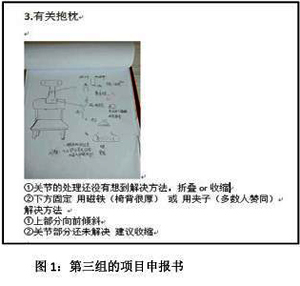 3.有关抱枕
①关节的处理还没有想到解决方法，折叠 or 收缩
②下方固定 用磁铁（椅背很厚） 或 用夹子（多数人赞同）
解决方法
①上部分向前倾斜
②关节部分还未解决 建议收缩
图 1：第三组的项目申报书